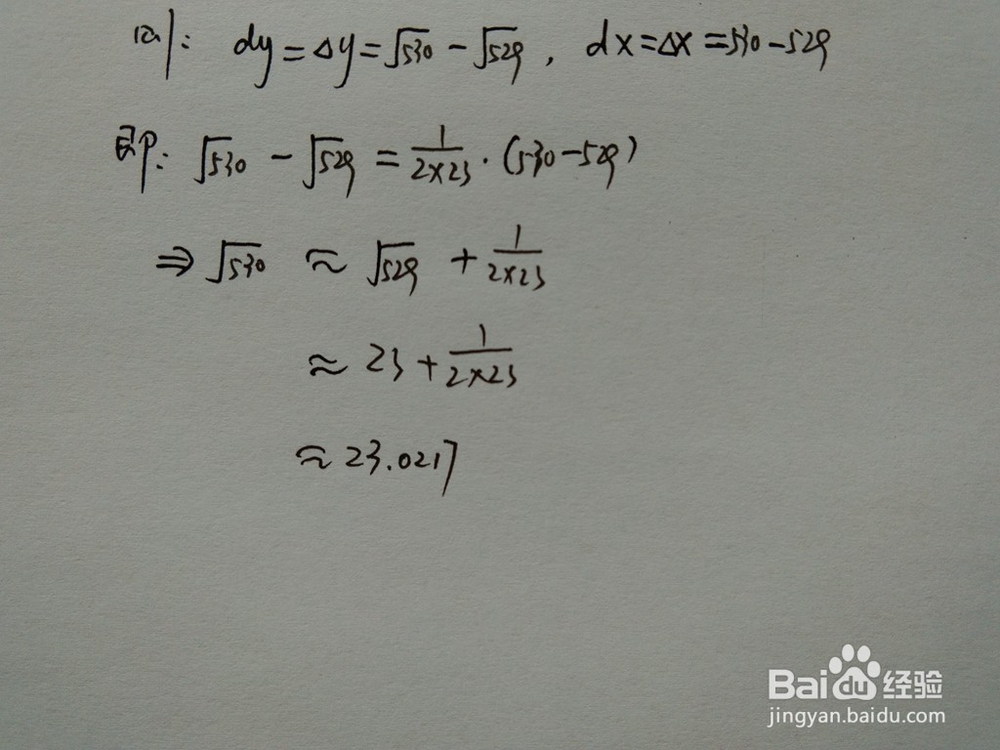 则: dy=Δy=√530-√529, dx=Δx=530-529
即: √530-√529=1/(2×23)·(530-529)
⇒√530 ≈ √529+1/(2×23)
≈ 23+1/(2×23)
≈23.0217
Baidu经验
jingyan.baidu.com